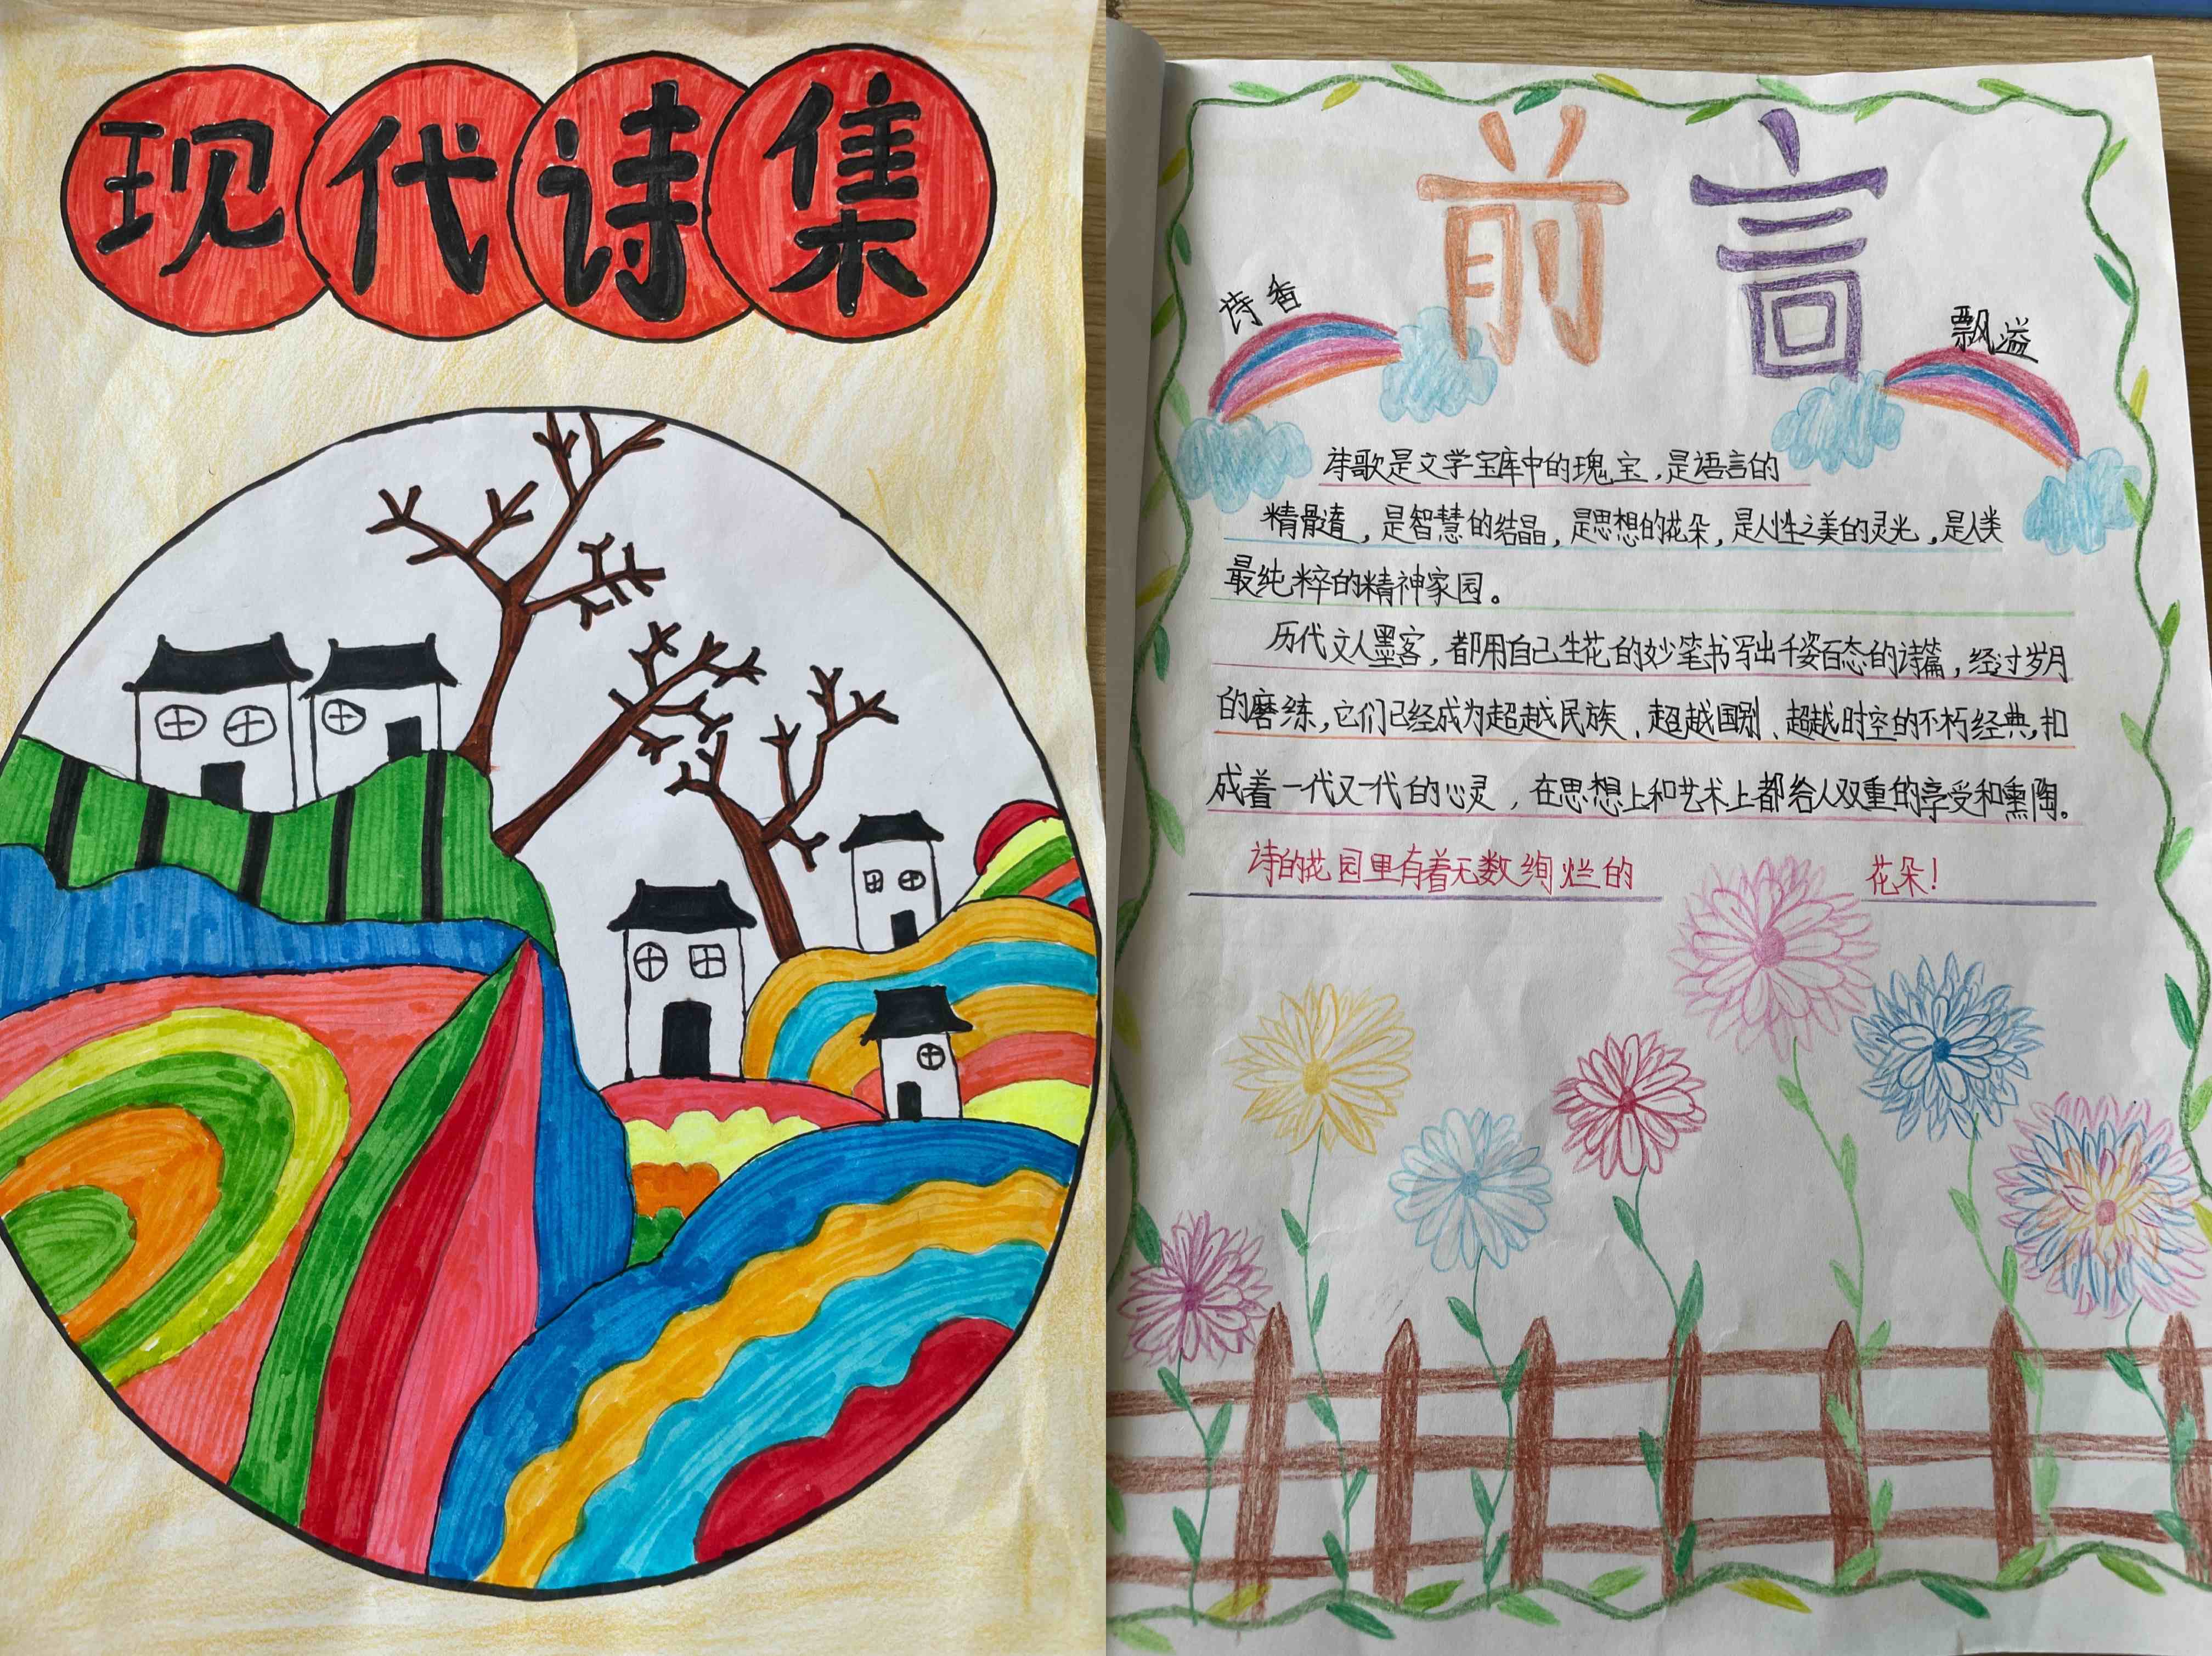 现代诗集
前言
诗香
飘溢
诗歌是文学宝库中的瑰宝,是语言的
精髓,是智慧的结晶,是思想的花朵,是人性之美的灵光,是人类
最纯粹的精神家园。
历代文人墨客,都用自己生花的妙笔书写出千姿百态的诗篇,经过岁月
的磨练,它们已经成为超越民族、超越国别、超越时空的不朽经典,扣
成着一代又一代的心灵,在思想上和艺术上都给人双重的享受和熏陶。
诗的花园里有着无数绚烂的 花朵!